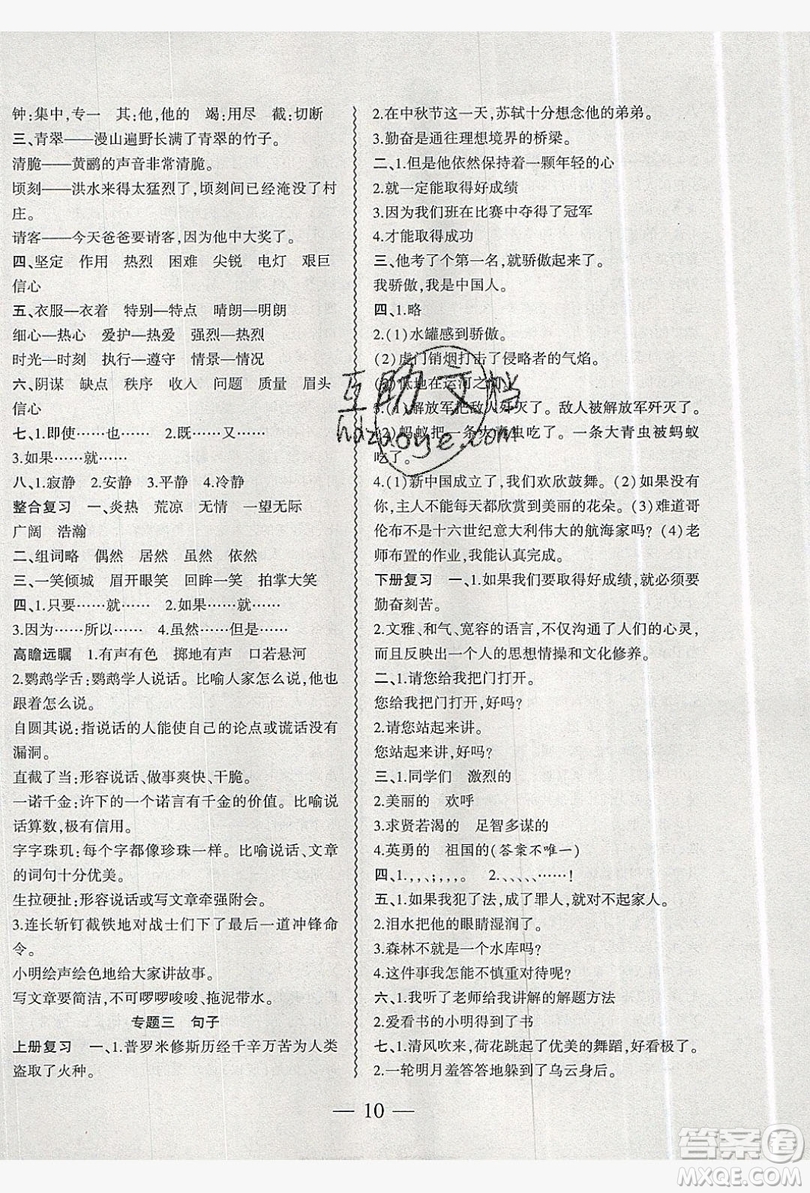 钟:集中,专一　其:他,他的　竭:用尽　截:切断
三、青翠——漫山遍野长满了青翠的竹子。
清脆——黄鹂的声音非常清脆。
顷刻——洪水来得太猛烈了,顷刻间村庄已经淹没了村
庄。
请客——今天爸爸要请客,因为他中大奖了。
四、坚定　作用　热烈　困难　尖锐　电灯　艰巨
信心
五、衣服—衣着　特别—特点　晴朗—明朗
细心—热心　爱护—热爱　强烈—热烈
时光—时刻　执行—遵守　情景—情况
六、阴谋　缺点　秩序　收入　问题　质量　眉头
信心
七、1.即使……也……　2.既……又……
3.如果……就……
八、1.寂静　2.安静　3.平静　4.冷静
整合复习　一、炎热　荒凉　无情　一望无际
广阔　浩瀚
二、组词略　偶然　居然　虽然　忽然
三、一笑倾城　眉开眼笑　回眸一笑　拍掌大笑
四、1.只要……就……　2.如果……就……
3.因为……所以……　4.虽然……但是……
高瞻远瞩　1.有声有色　掷地有声　口若悬河
2.鹦鹉学舌:鹦鹉学人说话。比喻人家怎么说,他也
跟着怎么说。
自圆其说:指说话的人能使自己的论点或谎话没有
漏洞。
直截了当:形容说话、做事爽快、干脆。
一诺千金:许下的一个诺言有千金的价值。比喻说
话算数,极有信用。
字字珠玑:每个字都像珍珠一样。比喻说话、文章
的词句十分优美。
生拉硬扯:形容说话或写文章牵强附会。
3.连长斩钉截铁地对战士们下了最后一道冲锋命
令。
小明绘声绘色地给大家讲故事。
写文章要简洁,不可啰啰唆唆、拖泥带水。
专题三　句子
上册复习　一、1.普罗米修斯历经千辛万苦为人类
盗取了火种。
2.在中秋节这一天,苏轼十分想念他的弟弟。
3.勤奋是通往理想境界的桥梁。
二、1.但是他依然保持着一颗年轻的心
2.就一定能取得好成绩
3.因为我们班在比赛中夺得了冠军
4.才能取得成功
三、他考了个第一名,就骄傲起来了。
我骄傲,我是中国人。
四、1.略
2.(1)水罐感到骄傲。
(2)虎门销烟打击了侵略者的气焰。
(3)低地在运河之间。
3.(1)解放军把敌人歼灭了。敌人被解放军歼灭了。
(2)蚂蚁把一条大青虫吃了。一条大青虫被蚂蚁
吃了。
4.(1)新中国成立了,我们欢欣鼓舞。(2)如果没有
你,主人不能每天都欣赏到美丽的花朵。(3)难道哥
伦布不是十六世纪意大利伟大的航海家吗?(4)老
师布置的作业,我认真完成。
下册复习　一、1.如果我们要取得好成绩,就必须要
勤奋刻苦。
2.文雅、和气、宽容的语言,不仅沟通了人们的心灵,
而且反映出一个人的思想情操和文化修养。
二、1.请您给我把门打开。
您给我把门打开,好吗?
2.请您站起来讲。
您站起来讲,好吗?
三、1.同学们　激烈的
2.美丽的　欢呼
3.求贤若渴的　足智多谋的
4.英勇的　祖国的(答案不唯一)
四、1.,,;,,。　2.、、、、、……!
五、1.如果我犯了法,成了罪人,就对不起家人。
2.泪水把他的眼睛湿润了。
3.森林不就是一个水库吗?
4.这件事我怎能不慎重对待呢?
六、1.我听了老师给我讲解的解题方法
2.爱看书的小明得到了书
七、1.清风吹来,荷花跳起了优美的舞蹈,婀娜多姿。
2.一轮明月羞答答地躲到了乌云身后。
— 10 —
互助文档
hdzuoye.com
答案圈
MXQE.COM